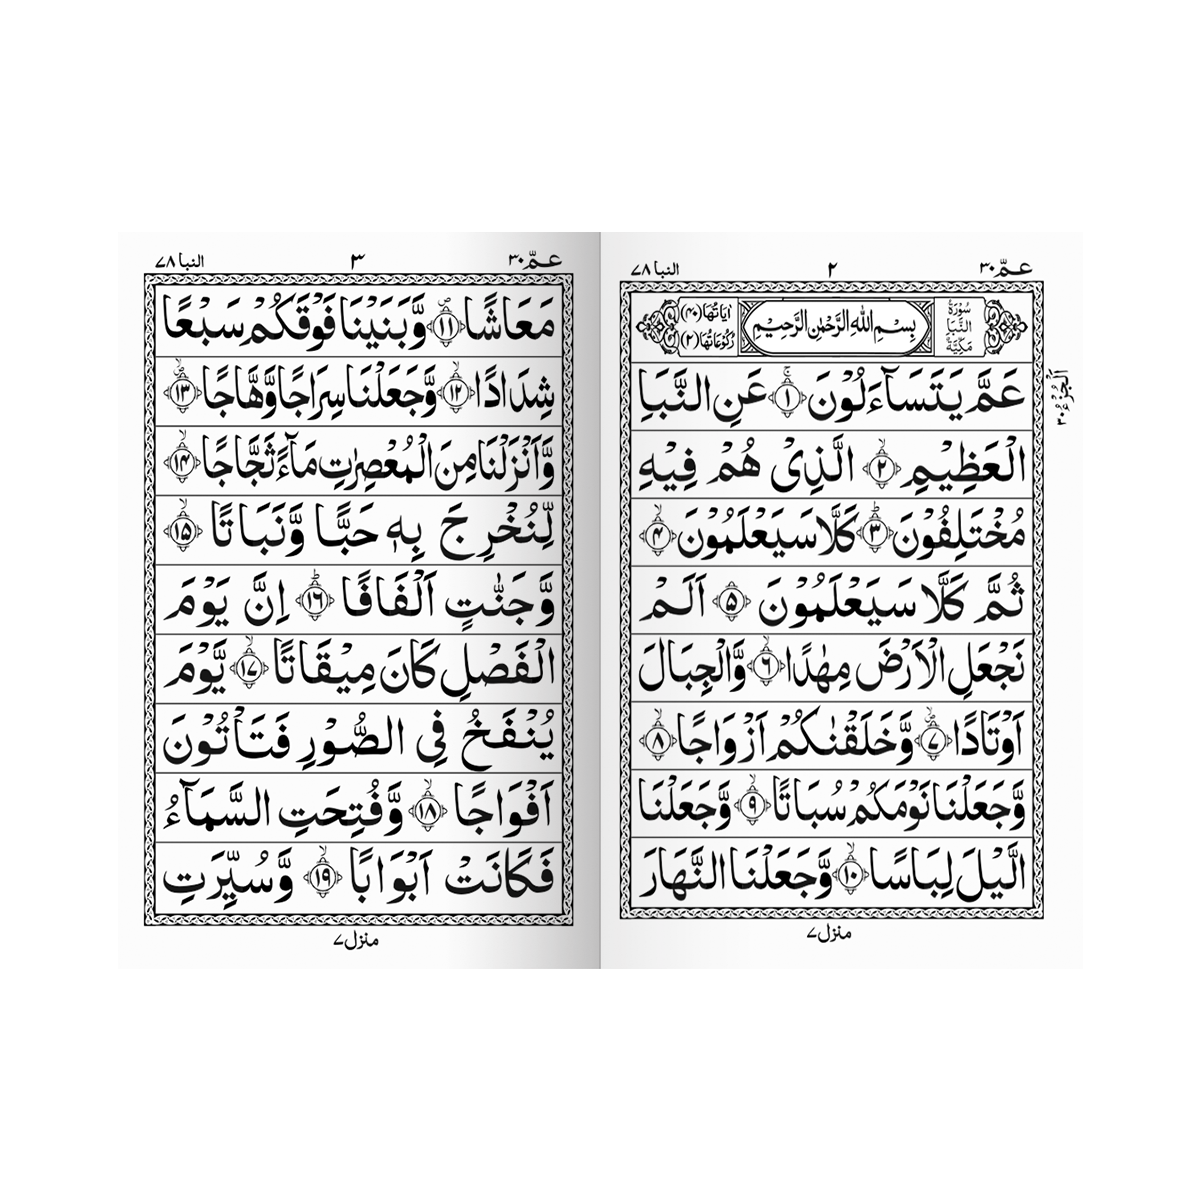 عـمّ ٣٠
٢
النبا ٧٨
سُوْرَةُ النَّبَاِ مَكِّيَّةٌ
بِسْمِ اللّٰهِ الرَّحْمٰنِ الرَّحِيْمِ
اٰيَاتُهَا (٤٠)
رُكُوْعَاتُهَا (٢)
عَمَّ يَتَسَآءَلُوْنَ ﴿١﴾ عَنِ النَّبَاِ
الْعَظِيْمِ ﴿٢﴾ الَّذِيْ هُمْ فِيْهِ
مُخْتَلِفُوْنَ ﴿٣﴾ كَلَّا سَيَعْلَمُوْنَ ﴿٤﴾
ثُمَّ كَلَّا سَيَعْلَمُوْنَ ﴿٥﴾ اَلَمْ
نَجْعَلِ الْاَرْضَ مِهٰدًا ﴿٦﴾ وَّالْجِبَالَ
اَوْتَادًا ﴿٧﴾ وَّخَلَقْنٰكُمْ اَزْوَاجًا ﴿٨﴾
وَّجَعَلْنَا نَوْمَكُمْ سُبَاتًا ﴿٩﴾ وَّجَعَلْنَا
الَّيْلَ لِبَاسًا ﴿١٠﴾ وَّجَعَلْنَا النَّهَارَ
منزل ٧
اَلْجُزْءُ ٣٠
عـمّ ٣٠
٣
النبا ٧٨
مَعَاشًا ﴿١١﴾ وَّبَنَيْنَا فَوْقَكُمْ سَبْعًا
شِدَادًا ﴿١٢﴾ وَّجَعَلْنَا سِرَاجًا وَّهَّاجًا ﴿١٣﴾
وَّاَنْزَلْنَا مِنَ الْمُعْصِرٰتِ مَآءً ثَجَّاجًا ﴿١٤﴾
لِّنُخْرِجَ بِهٖ حَبًّا وَّنَبَاتًا ﴿١٥﴾
وَّجَنّٰتٍ اَلْفَافًا ﴿١٦﴾ اِنَّ يَوْمَ
الْفَصْلِ كَانَ مِيْقَاتًا ﴿١٧﴾ يَّوْمَ
يُنْفَخُ فِي الصُّوْرِ فَتَاْتُوْنَ
اَفْوَاجًا ﴿١٨﴾ وَّفُتِحَتِ السَّمَآءُ
فَكَانَتْ اَبْوَابًا ﴿١٩﴾ وَّسُيِّرَتِ
منزل ٧